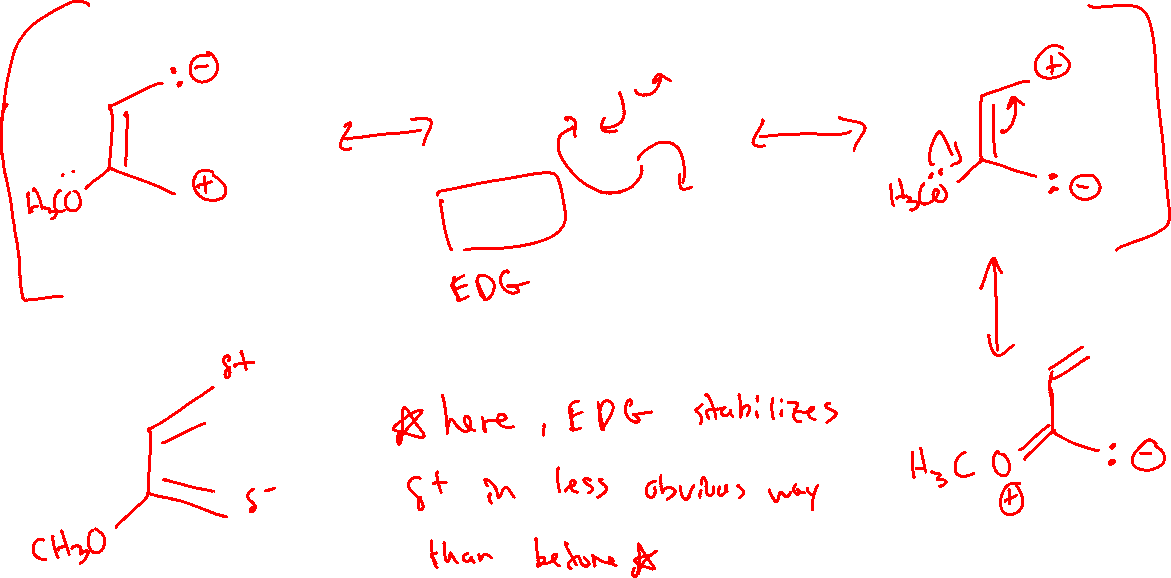 :⊖
⊕
H₃CÖ
EDG
⊕
H₃CÖ
:⊖
δ+
δ-
CH₃O
☆ here, EDG stabilizes
δ+ in less obvious way
than before ☆
H₃C O
⊕
:⊖